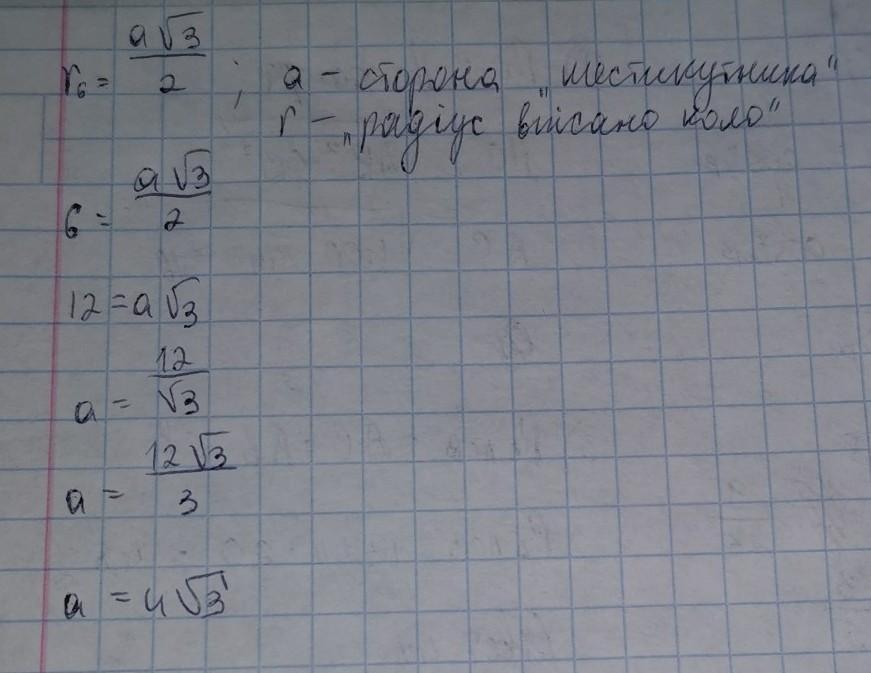 r₆ = a√3/2 ; a – сторона „шестикутника"
r – „радіус вписано коло"
6 = a√3/2
12 = a√3
a = 12/√3
a = 12√3/3
a = 4√3